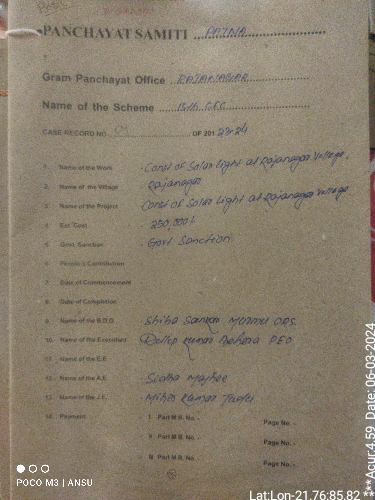 PANCHAYAT SAMITI PATNA
Gram Panchayat Office RAJANAGAR
Name of the Scheme 15th CFC
CASE RECORD NO. 01 OF 201 23-24
1. Name of the Work - Const of Solar light at Rajanagar Village.
2. Name of the Village - Rajanagar
3. Name of the Project - Const of Solar light at Rajanagar Village
4. Est. Cost - 250,000/-
5. Govt. Sanction - Govt Sanction
6. People's Contribution
7. Date of Commencement
8. Date of Completion
9. Name of the B.D.O - Shiba Sankar Murmu OAS.
10. Name of the Executant - Dillip Kumar Behera PEO
11. Name of the E.E
12. Name of the A.E - Majhee
13. Name of the J.E. - Kumar
14. Payment I Part M.B. No. - Page No. -
II Part M.B. No. - Page No. -
III Part M.B. No. - Page No. -
POCO M3 | ANSU
Lat:Lon-21.76:85.82 ***Acur:4.59 Date:06-03-2024